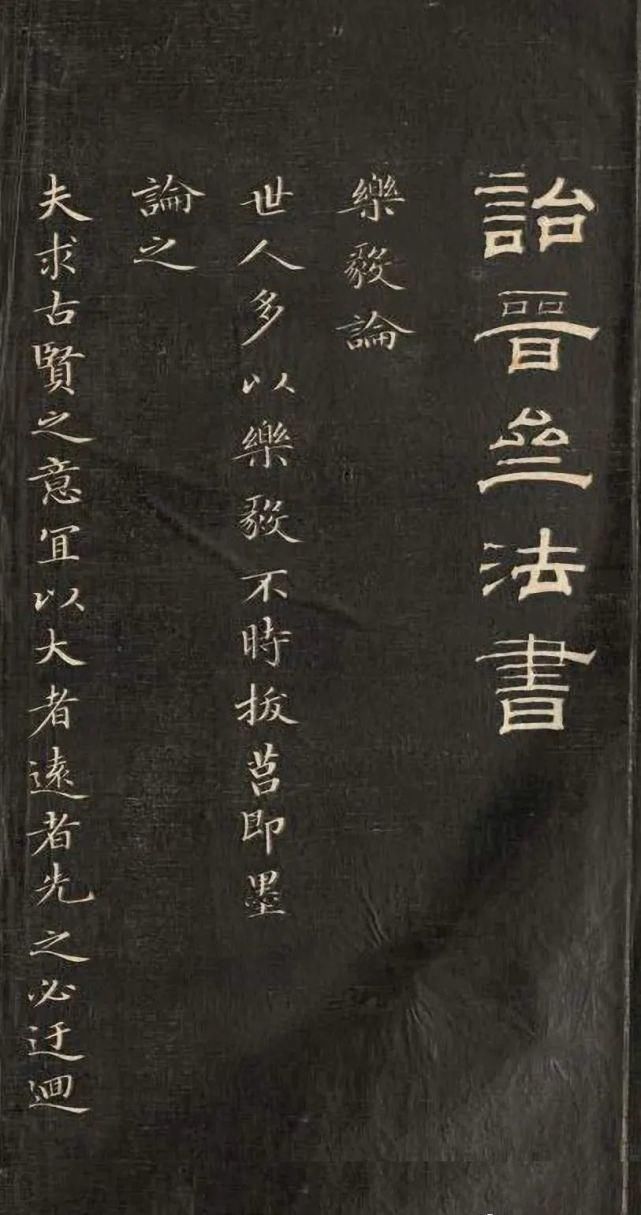 詒晉齋法書
樂毅論
世人多以樂毅不時拔莒即墨
論之
夫求古賢之意宜以大者遠者先之必迂迴